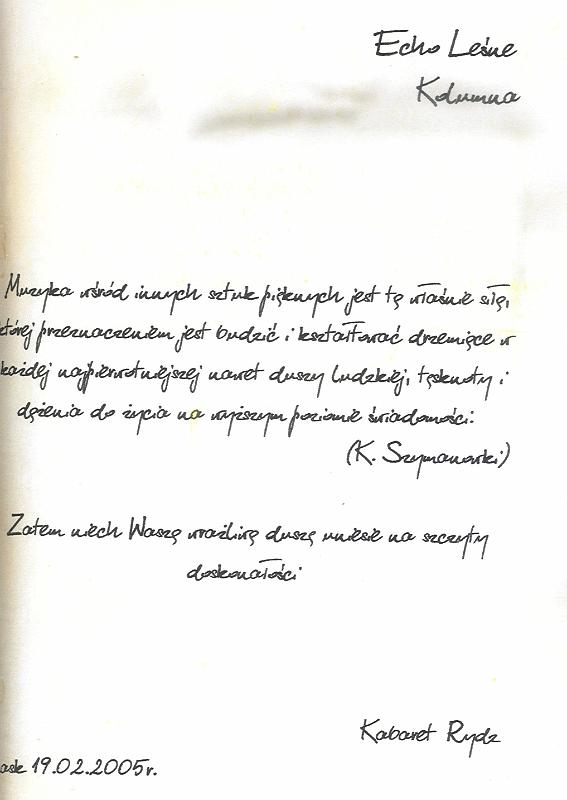 Echo Leśne
Kolumna
Muzyka wśród innych sztuk pięknych jest tą właśnie siłą,
której przeznaczeniem jest budzić i kształtować drzemiące w
każdej najpierwotniejszej nawet duszy ludzkiej, tęsknoty i
dążenia do życia na wyższym poziomie świadomości.
(K. Szymanowski)
Zatem niech Waszą wrażliwą duszę uniesie na szczyty
doskonałości
Kabaret Rydz
ask 19.02.2005r.